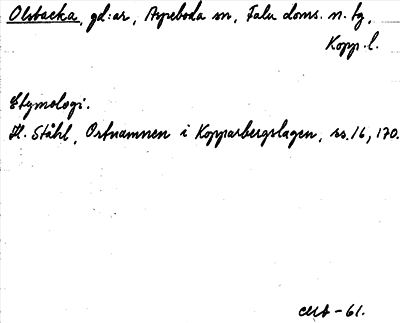 Olsbacka, gd:ar, Aspeboda sn, Falu doms. n. tg,
Kopp. l.
Etymologi.
H. Ståhl, Ortnamnen i Kopparbergslagen, ss. 16, 170.
-61.